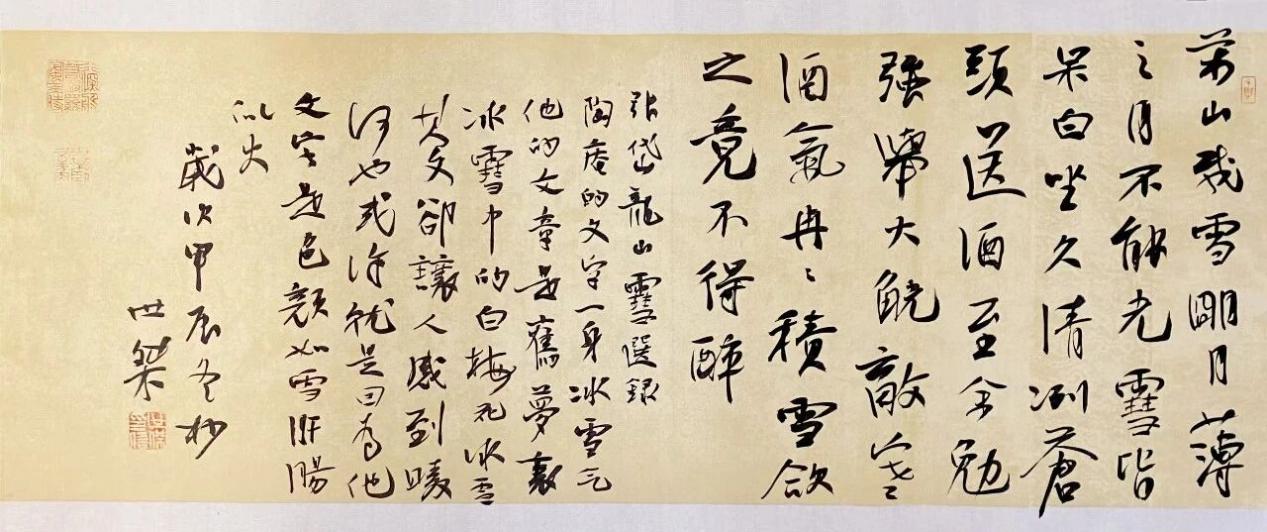 萬山載雪明月薄
之月不能光雪皆
呆白坐久清冽蒼
頭送酒至余勉
強舉大觥敵寒
酒氣冉〻積雪欱
之竟不得醉
張岱龍山雪選録
陶庵的文字一身冰雪气
他的文章是舊夢裏
冰雪中的白梅花冰雪
其文卻讓人感到暖
何也或許就是因為他
文字是色顏如雪肝腸
似火
歲次甲辰冬杪
世